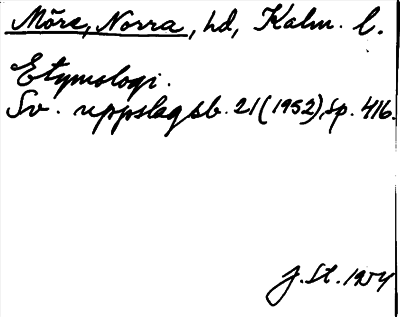 Möre, Norra, hd, Kalm. l.
Etymologi.
Sv. uppslagsb. 21 (1952) sp. 416.
J. St. 1974